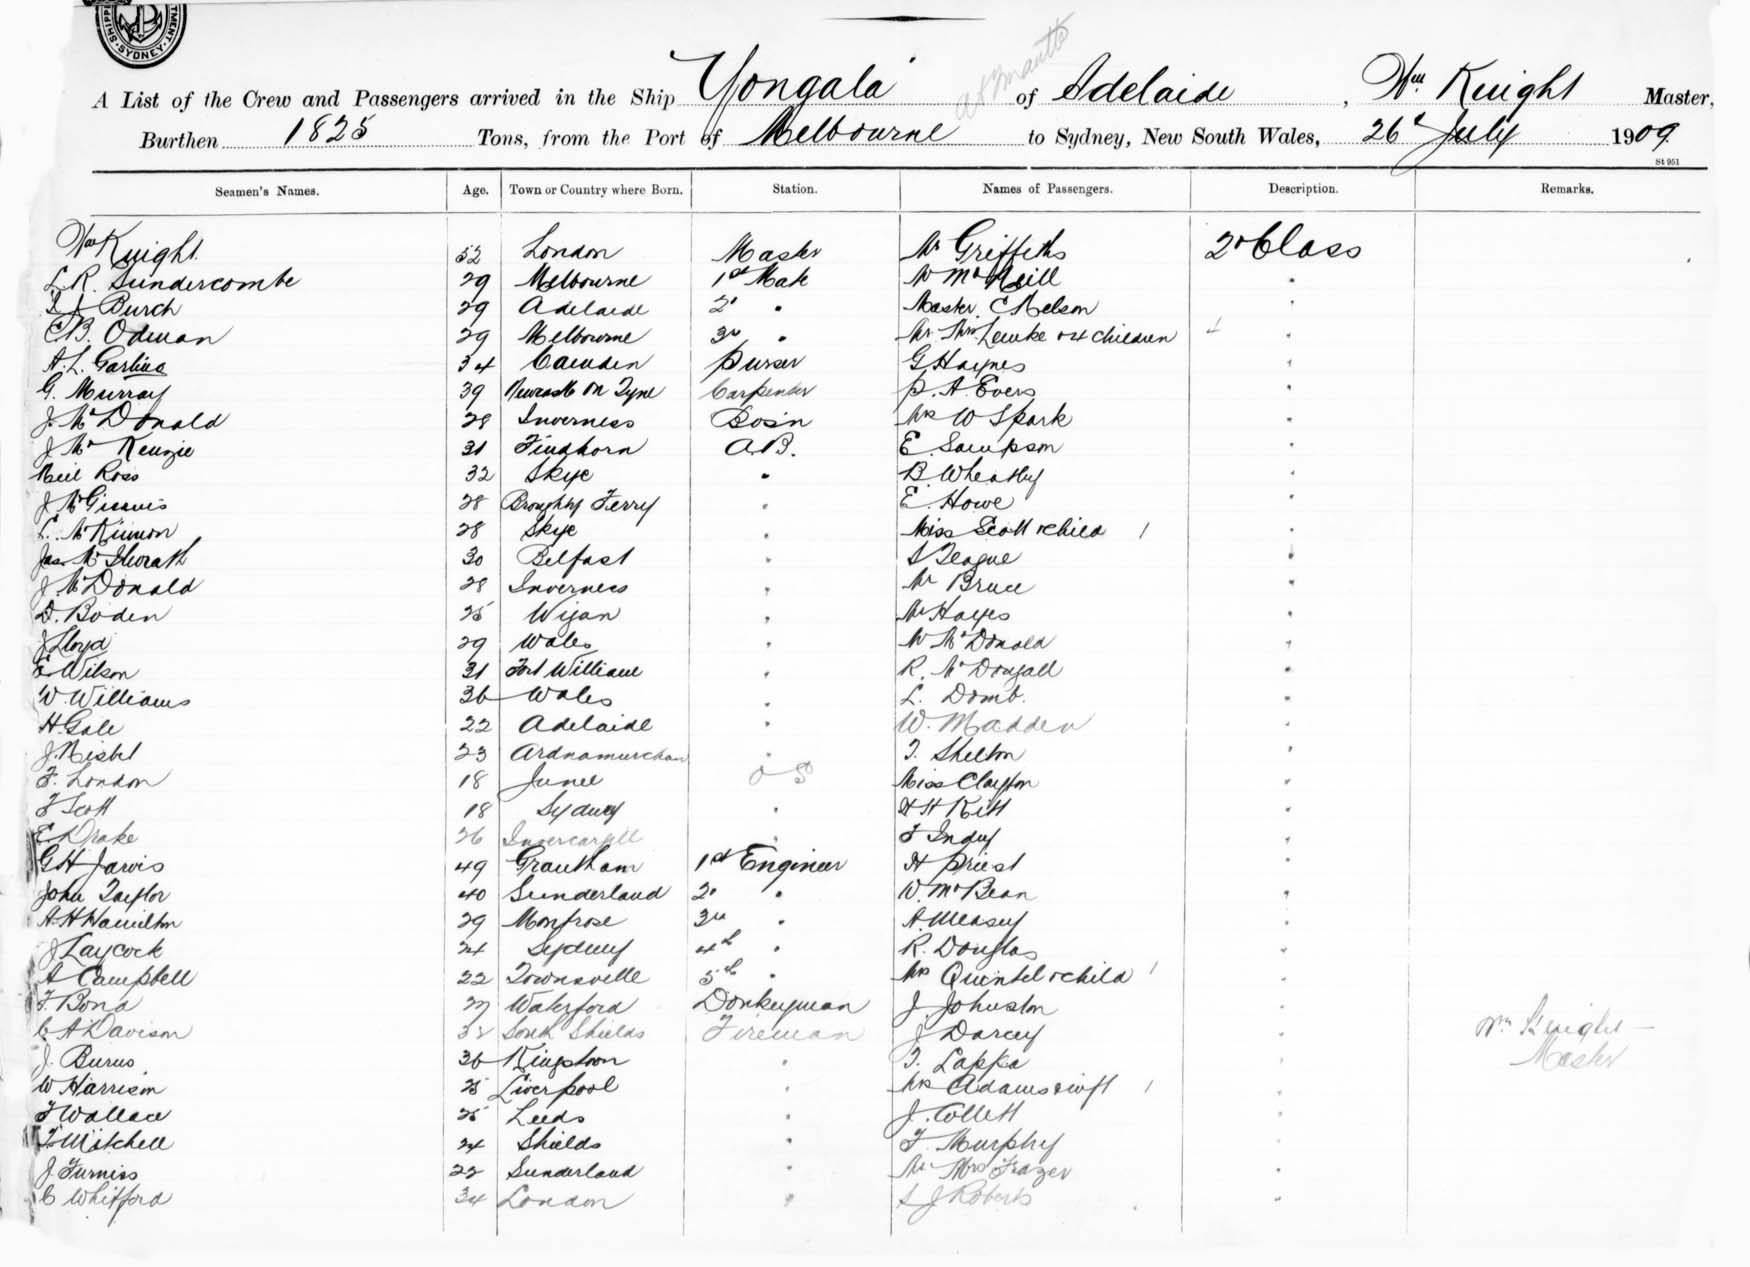 SYDNEY
A List of the Crew and Passengers arrived in the Ship Yongala of Adelaide, Wm Knight Master,
Burthen 1825 Tons, from the Port of Melbourne to Sydney, New South Wales, 26th July 1909.
St 951
Seamen's Names. Age. Town or Country where Born. Station. Names of Passengers. Description. Remarks.
Wm Knight 52 London Master Mr Griffiths 2d Class
L. R. Sundercombe 29 Melbourne 1st Mate W McNeill "
Burch 29 Adelaide 2d " Master C Nelson "
C B. Odman 29 Melbourne 3rd " Mr Mrs Lemke & 4 children 4 "
A. L. Garling 34 Camden Purser G Haynes "
G. Murray 39 Newcastle on Tyne Carpenter P. A. Evers "
J. McDonald 28 Inverness Bosn Mrs W Spark "
J McKenzie 31 Findhorn A.B. E. Sampson "
Neil Ross 32 Skye " B. Wheatly "
J McGinnis 28 Broughty Ferry " E. Howe "
L. McKinnon 28 Skye " Miss Scott & child 1 "
Jas McIlwrath 30 Belfast " S Teague "
J. McDonald 28 Inverness " Mr Bruce "
D. Boden 25 Wigan " Mr Hayes "
J Lloyd 29 Wales " W McDonald "
E Wilson 31 Fort William " R. McDougall "
W. Williams 36 Wales " L. Domb. "
H. Gale 22 Adelaide " W. Madden "
J. Nisbet 23 Ardnamurchan " T. Shelton "
F. London 18 Junee O S Miss Clayton "
F Scott 18 Sydney " H H Kitt "
E Drake 26 Invercargill " F Induy "
G H Jarvis 49 Grantham 1st Engineer H Priest "
John Taylor 40 Sunderland 2d " W. McBean "
A. H Hamilton 29 Montrose 3rd " A. Measey "
J Laycock 24 Sydney 4th " R. Douglas "
A Campbell 22 Townsville 5th " Mrs Quintel & child 1 "
F. Bond 27 Waterford Donkeyman J Johnston "
C A Davison 32 South Shields Fireman J Darcey "
Wm Knight
Master
J. Burns 36 Kingstown " T. Lappa "
W Harrison 25 Liverpool " Mrs Adams & inft 1 "
F Wallace 25 Leeds " J. Collett "
F. Mitchell 24 Shields " F. Murphy "
J. Furniss 22 Sunderland " Mr Mrs Frazer "
C Whitford 34 London " S J Roberts "